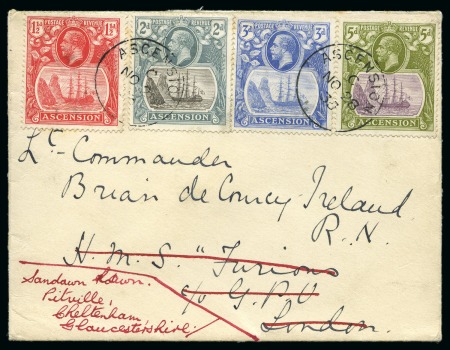 POSTAGE REVENUE POSTAGE REVENUE POSTAGE REVENUE POSTAGE REVENUE
1½d 1½d 2d 2d 3d 3d 5d 5d
ASCENSION ASCENSION ASCENSION ASCENSION
ASCENSION
C
NO
ASCENSION
C
NO
Lt-Commander
Brian de Courcy-Ireland
R.N.
H.M.S. "Furious
c/o G.P.O
London.
Sandawn
Pitville,
Cheltenham
Gloucestershire.